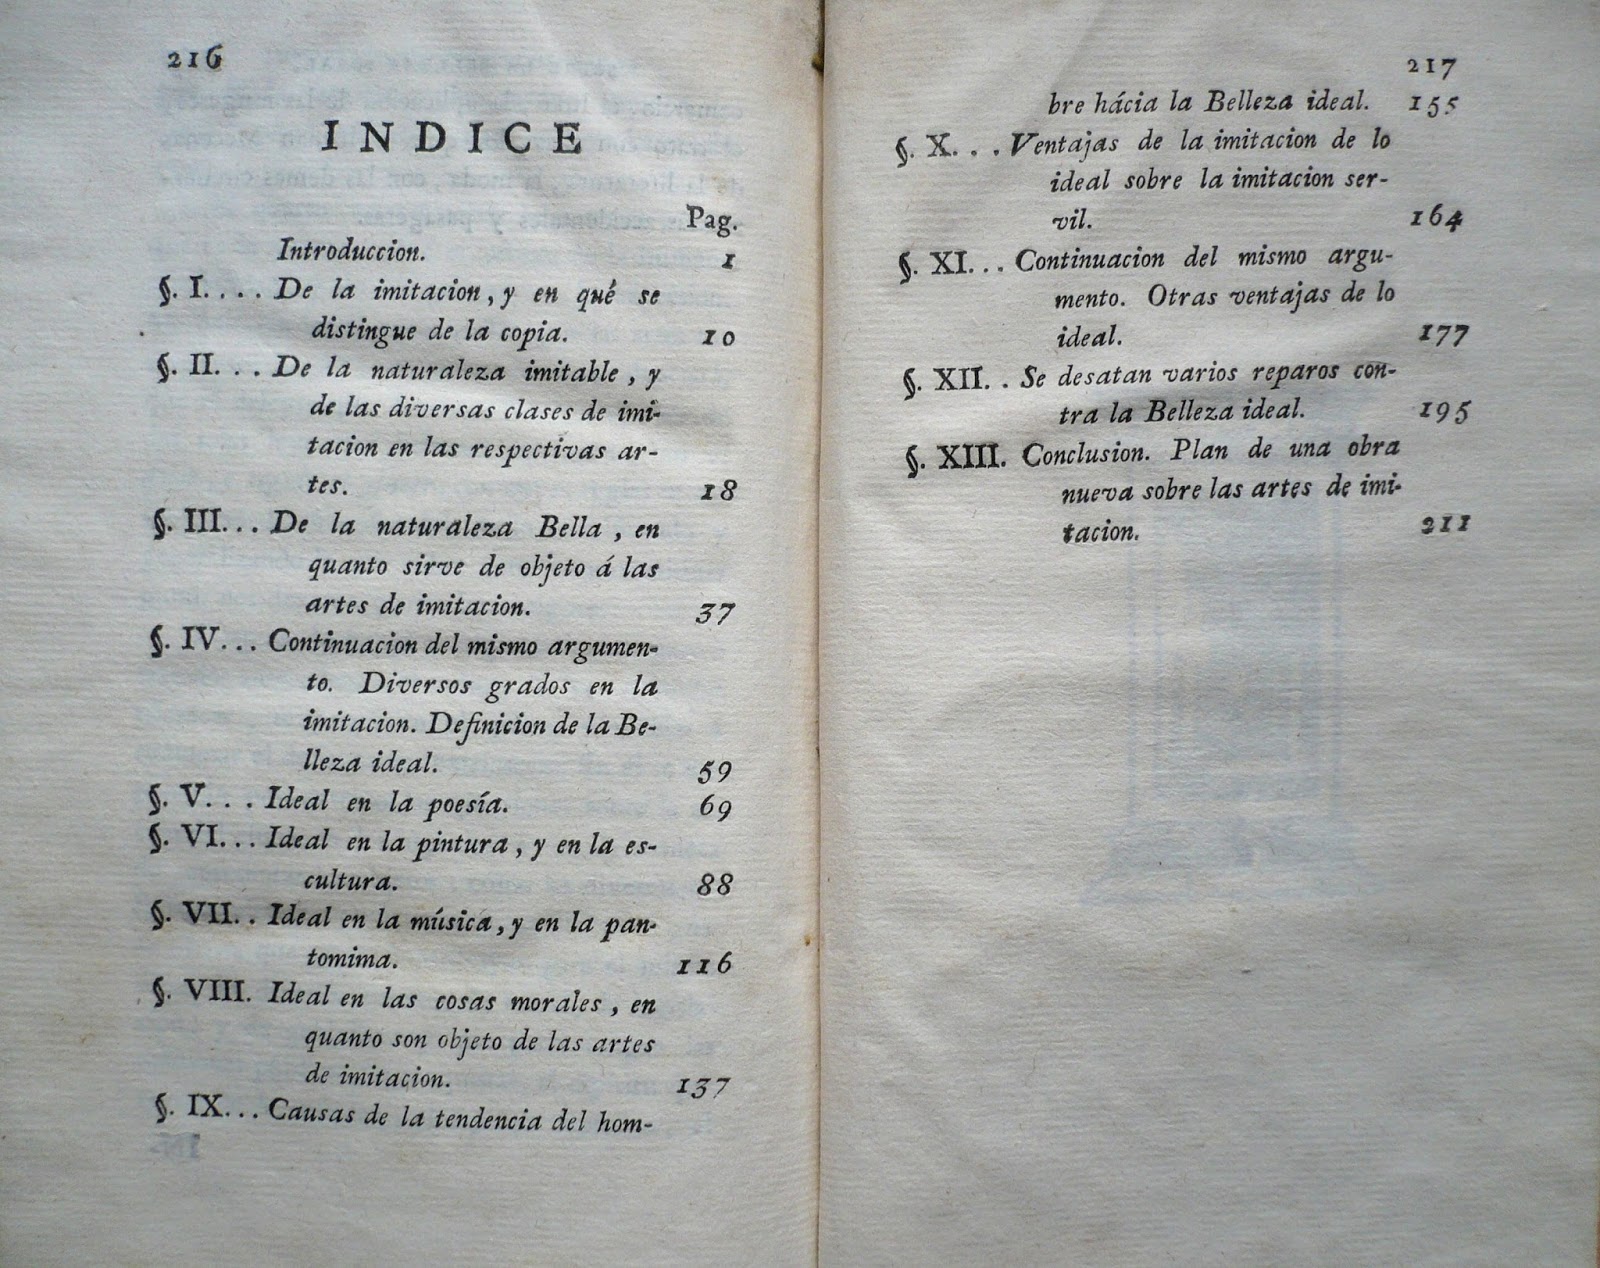 216
INDICE
Pag.
Introduccion. 1
§. I. . . . De la imitacion, y en qué se
distingue de la copia. 10
§. II. . . De la naturaleza imitable, y
de las diversas clases de imi-
tacion en las respectivas ar-
tes. 18
§. III. . . De la naturaleza Bella, en
quanto sirve de objeto á las
artes de imitacion. 37
§. IV. . . Continuacion del mismo argumen-
to. Diversos grados en la
imitacion. Definicion de la Be-
lleza ideal. 59
§. V. . . Ideal en la poesía. 69
§. VI. . . Ideal en la pintura, y en la es-
cultura. 88
§. VII. . Ideal en la música, y en la pan-
tomima. 116
§. VIII. Ideal en las cosas morales, en
quanto son objeto de las artes
de imitacion. 137
§. IX. . . Causas de la tendencia del hom-
217
bre hácia la Belleza ideal. 155
§. X. . . Ventajas de la imitacion de lo
ideal sobre la imitacion ser-
vil. 164
§. XI. . . Continuacion del mismo argu-
mento. Otras ventajas de lo
ideal. 177
§. XII. . Se desatan varios reparos con-
tra la Belleza ideal. 195
§. XIII. Conclusion. Plan de una obra
nueva sobre las artes de imi-
tacion. 211